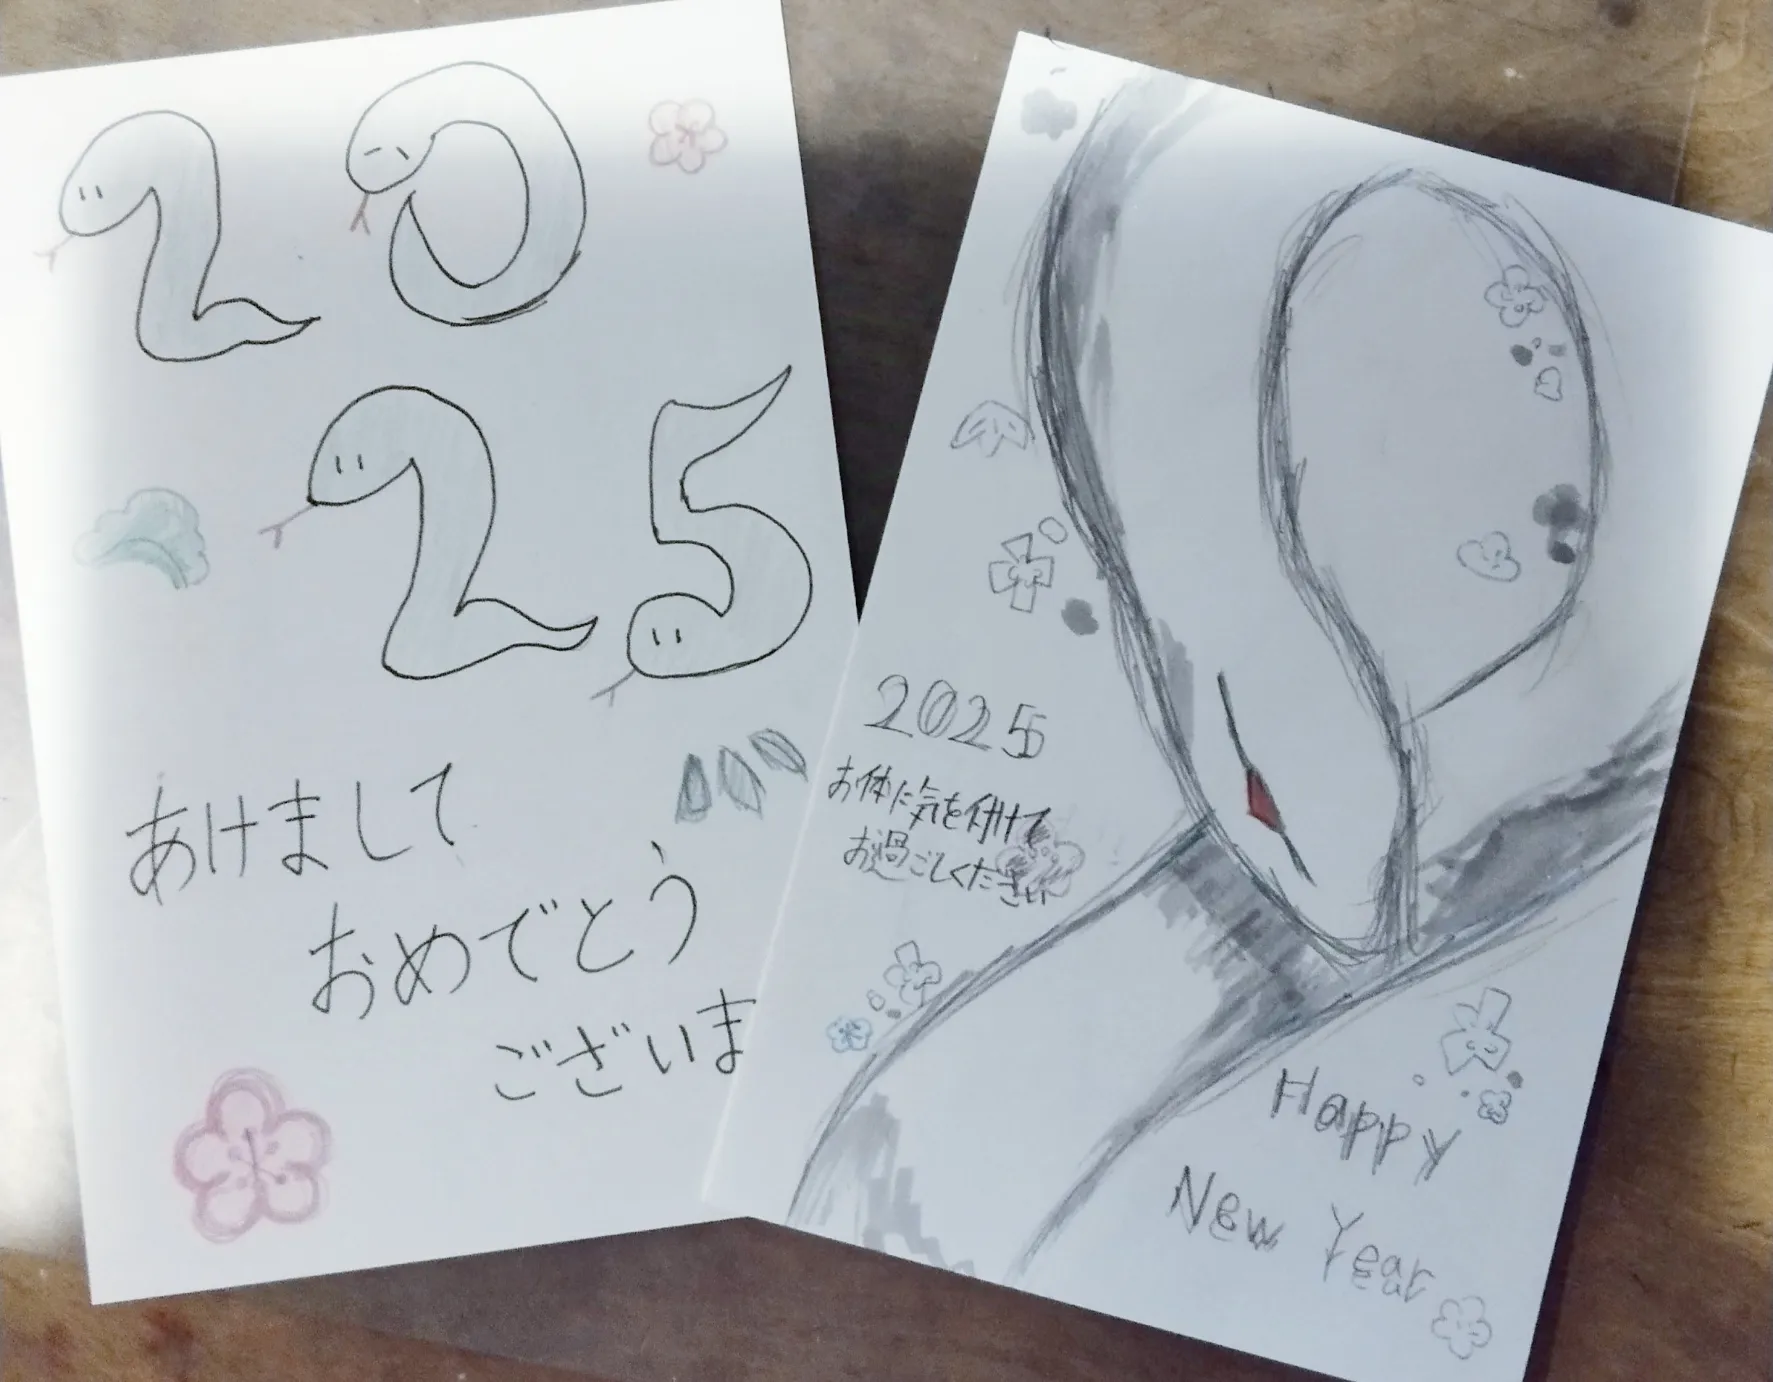 20
25
あけまして
おめでとう
ございま
2025
お体に気を付けて
お過ごしください
Happy
New Year